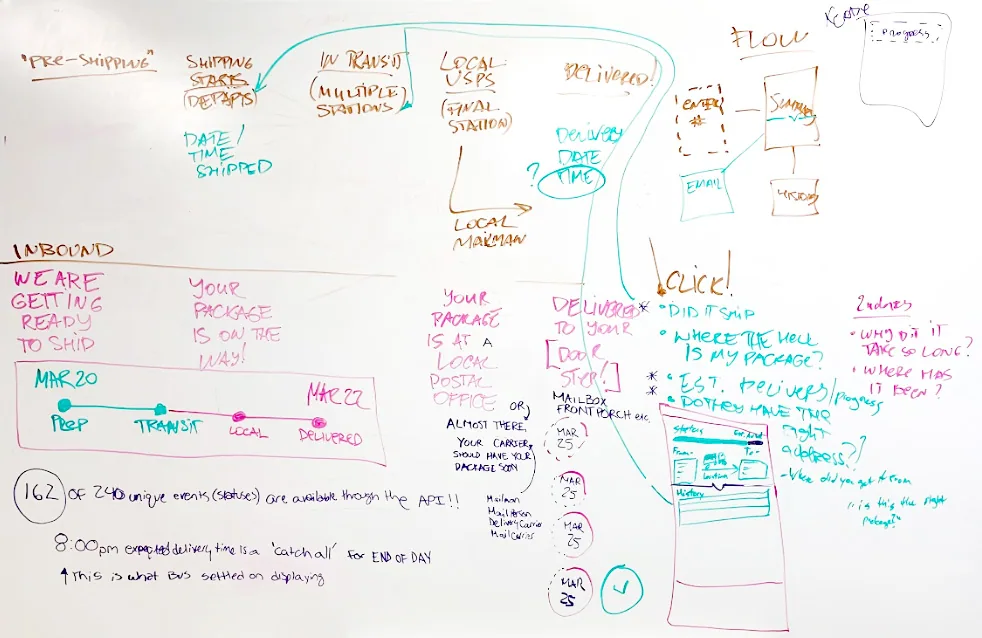 "PRE-SHIPPING"
SHIPPING
STARTS
(DEPARTS)
DATE/
TIME
SHIPPED
IN TRANSIT
(MULTIPLE
STATIONS)
LOCAL
USPS
(FINAL
STATION)
LOCAL
MAILMAN
DELIVERED!
DELIVERY
DATE
? TIME
FLOW
ENTER
#
EMAIL
Progress
INBOUND
WE ARE
GETTING
READY
TO SHIP
YOUR
PACKAGE
IS ON THE
WAY!
YOUR
PACKAGE
IS AT A
LOCAL
POSTAL
OFFICE
OR
ALMOST THERE,
YOUR CARRIER
SHOULD HAVE YOUR
PACKAGE SOON
Mailman
Mail Person
Delivery Carrier
Mail Carrier
DELIVERED
TO YOUR
[DOOR
STEP!]
MAILBOX
FRONT PORCH etc.
MAR
25
MAR
25
MAR
25
MAR
25
MAR 20
MAR 22
PREP
TRANSIT
LOCAL
DELIVERED
162 OF 240 unique events (statuses) are available through the API!!
8:00pm expected delivery time is a 'catch all' for END OF DAY
↑ This is what BUS settled on displaying
CLICK!
* • DID IT SHIP
• WHERE THE HELL
IS MY PACKAGE?
* • EST. DELIVERS/Progress
* • DO THEY HAVE THE
right
address??
- Where did you get it from
"is this the right
package?"
Status
From
To
Location
History
• WHY DID IT
TAKE SO LONG?
• WHERE HAS
IT BEEN?